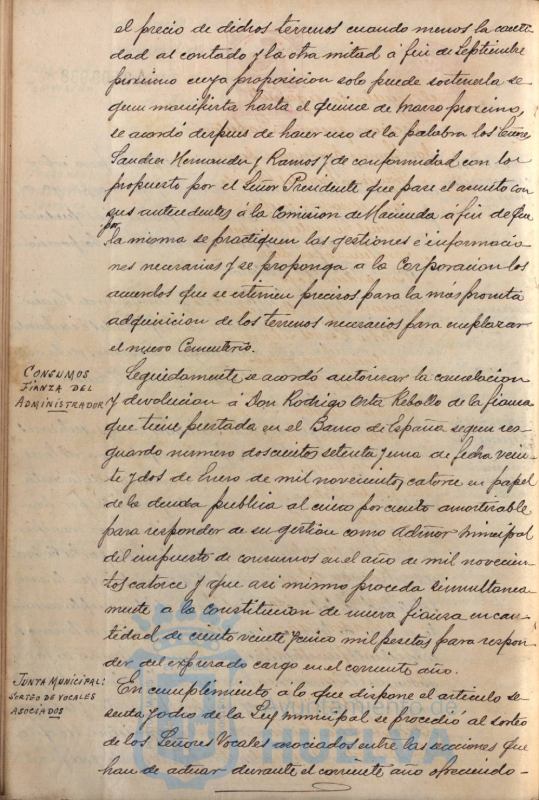 el precio de dichos terrenos cuando menos la canti
dad al contado y la otra mitad á fin de Septiembre
proximo cuya proposicion solo puede sostenerla se
gun manifiesta hasta el quince de Marzo proximo,
se acordó despues de hacer uso de la palabra los Señores
Sanchez Hernandez y Ramos y de conformidad con lo
propuesto por el Señor Presidente que pase el asunto con
sus antecedentes á la Comision de Hacienda á fin de que
por
la misma se practiquen las gestiones é informacio
nes necesarias y se proponga a la Corporacion los
acuerdos que se estimen precisos para la más pronta
adquisicion de los terrenos necesarios para emplazar
el nuevo Cementerio.
CONSUMOS
FIANZA DEL
ADMINISTRADOR
Seguidamente se acordó autorizar la cancelacion
y devolucion á Don Rodrigo Orta Rebollo de la fianza
que tiene prestada en el Banco de España segun res-
guardo numero doscientos setenta y uno de fecha vein-
te y dos de Enero de mil novecientos catorce en papel
de la deuda publica al cinco por ciento amortizable
para responder de su gestion como Admor municipal
del impuesto de consumos en el año de mil novecien
tos catorce y que asi mismo proceda simultanea
mente a la constitucion de nueva fianza en can-
tidad de ciento veinte y cinco mil pesetas para respon
der del expresado cargo en el corriente año.
JUNTA MUNICIPAL:
SORTEO DE VOCALES
ASOCIADOS
En cumplimiento á lo que dispone el articulo se-
senta y ocho de la Ley municipal se procedio al sorteo
de los Señores Vocales asociados entre las secciones que
han de actuar durante el corriente año ofreciendo -
Ayuntamiento de
HUELVA